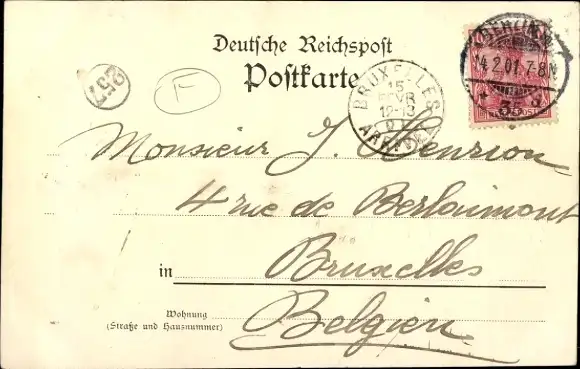 Deutsche Reichspost
Postkarte
BERLIN W.
14.2.01.7-8N.
35 a
BRUXELLES
15
FEVR
12-13
ARR
257
F
Monsieur J. Henrion
4 rue de Berlaimont
in Bruxelles
Wohnung
(Straße und Hausnummer)
Belgien